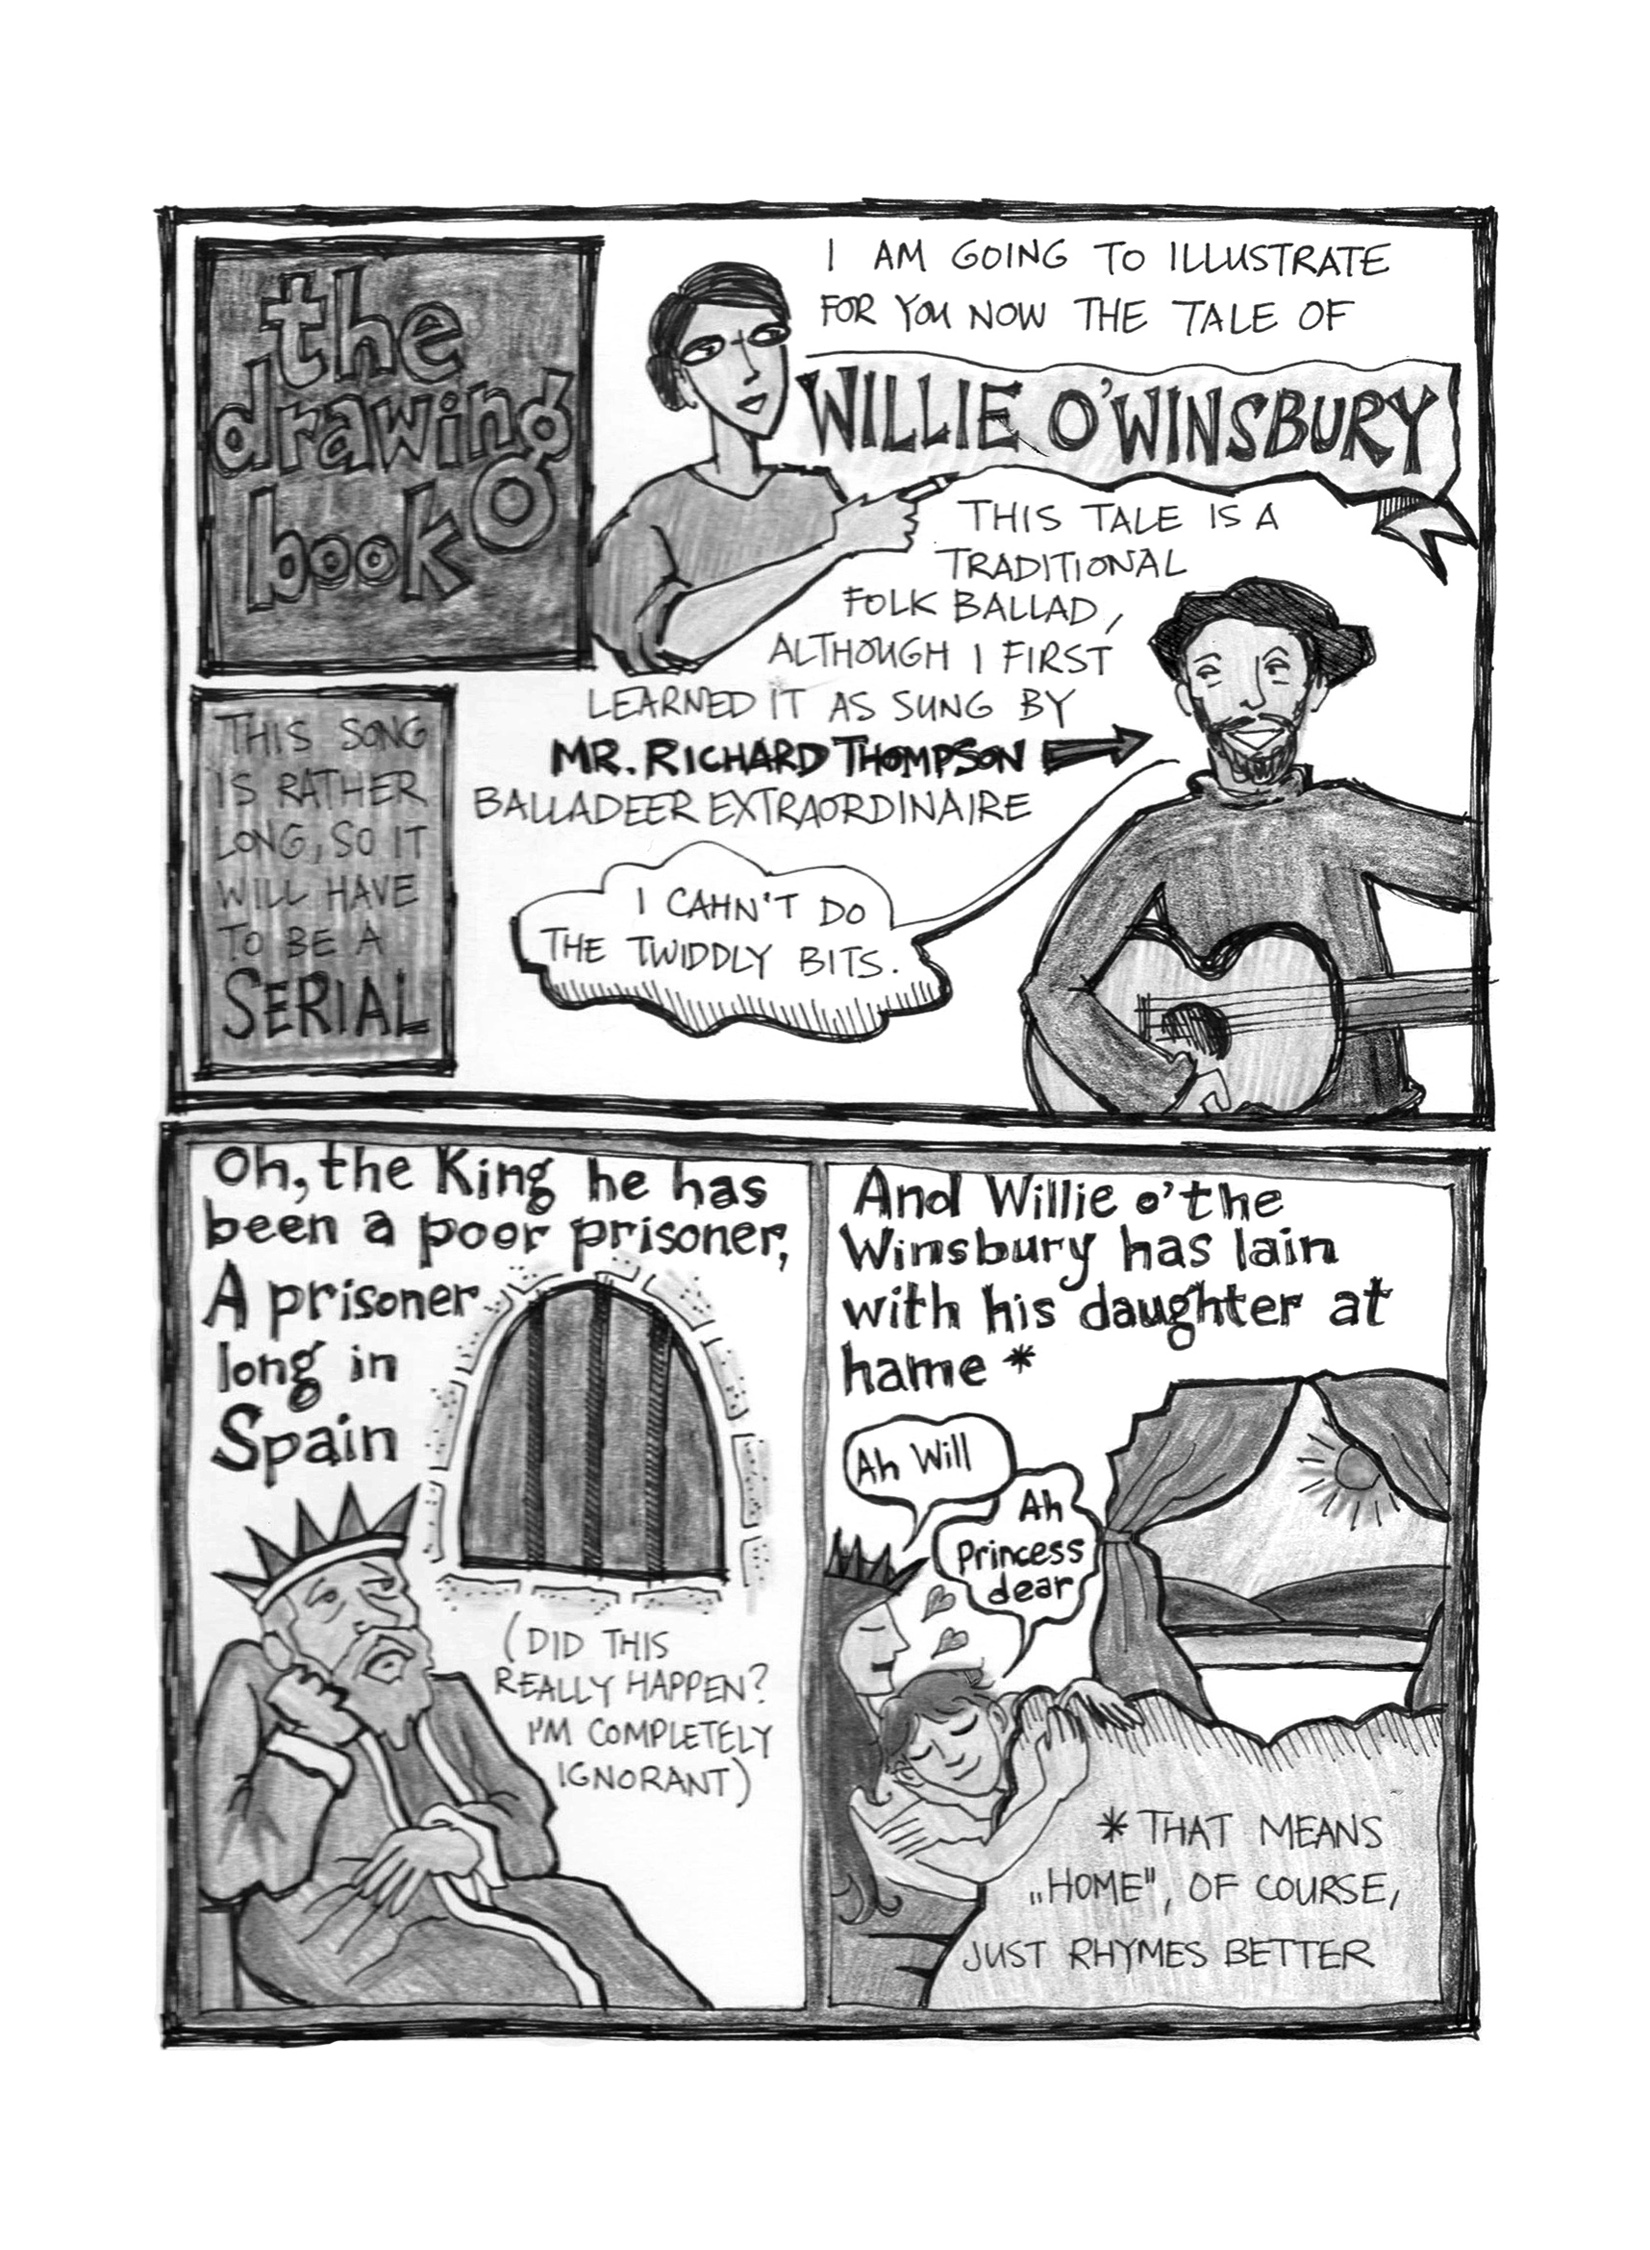 the
drawing
book
I AM GOING TO ILLUSTRATE
FOR YOU NOW THE TALE OF
WILLIE O'WINSBURY
THIS TALE IS A
TRADITIONAL
FOLK BALLAD,
ALTHOUGH I FIRST
LEARNED IT AS SUNG BY
MR. RICHARD THOMPSON
BALLADEER EXTRAORDINAIRE
THIS SONG
IS RATHER
LONG, SO IT
WILL HAVE
TO BE A
SERIAL
I CAHN'T DO
THE TWIDDLY BITS.
Oh, the King he has
been a poor prisoner,
A prisoner
long in
Spain
(DID THIS
REALLY HAPPEN?
I'M COMPLETELY
IGNORANT)
And Willie o' the
Winsbury has lain
with his daughter at
hame *
Ah Will
Ah
Princess
dear
* THAT MEANS
„HOME", OF COURSE,
JUST RHYMES BETTER